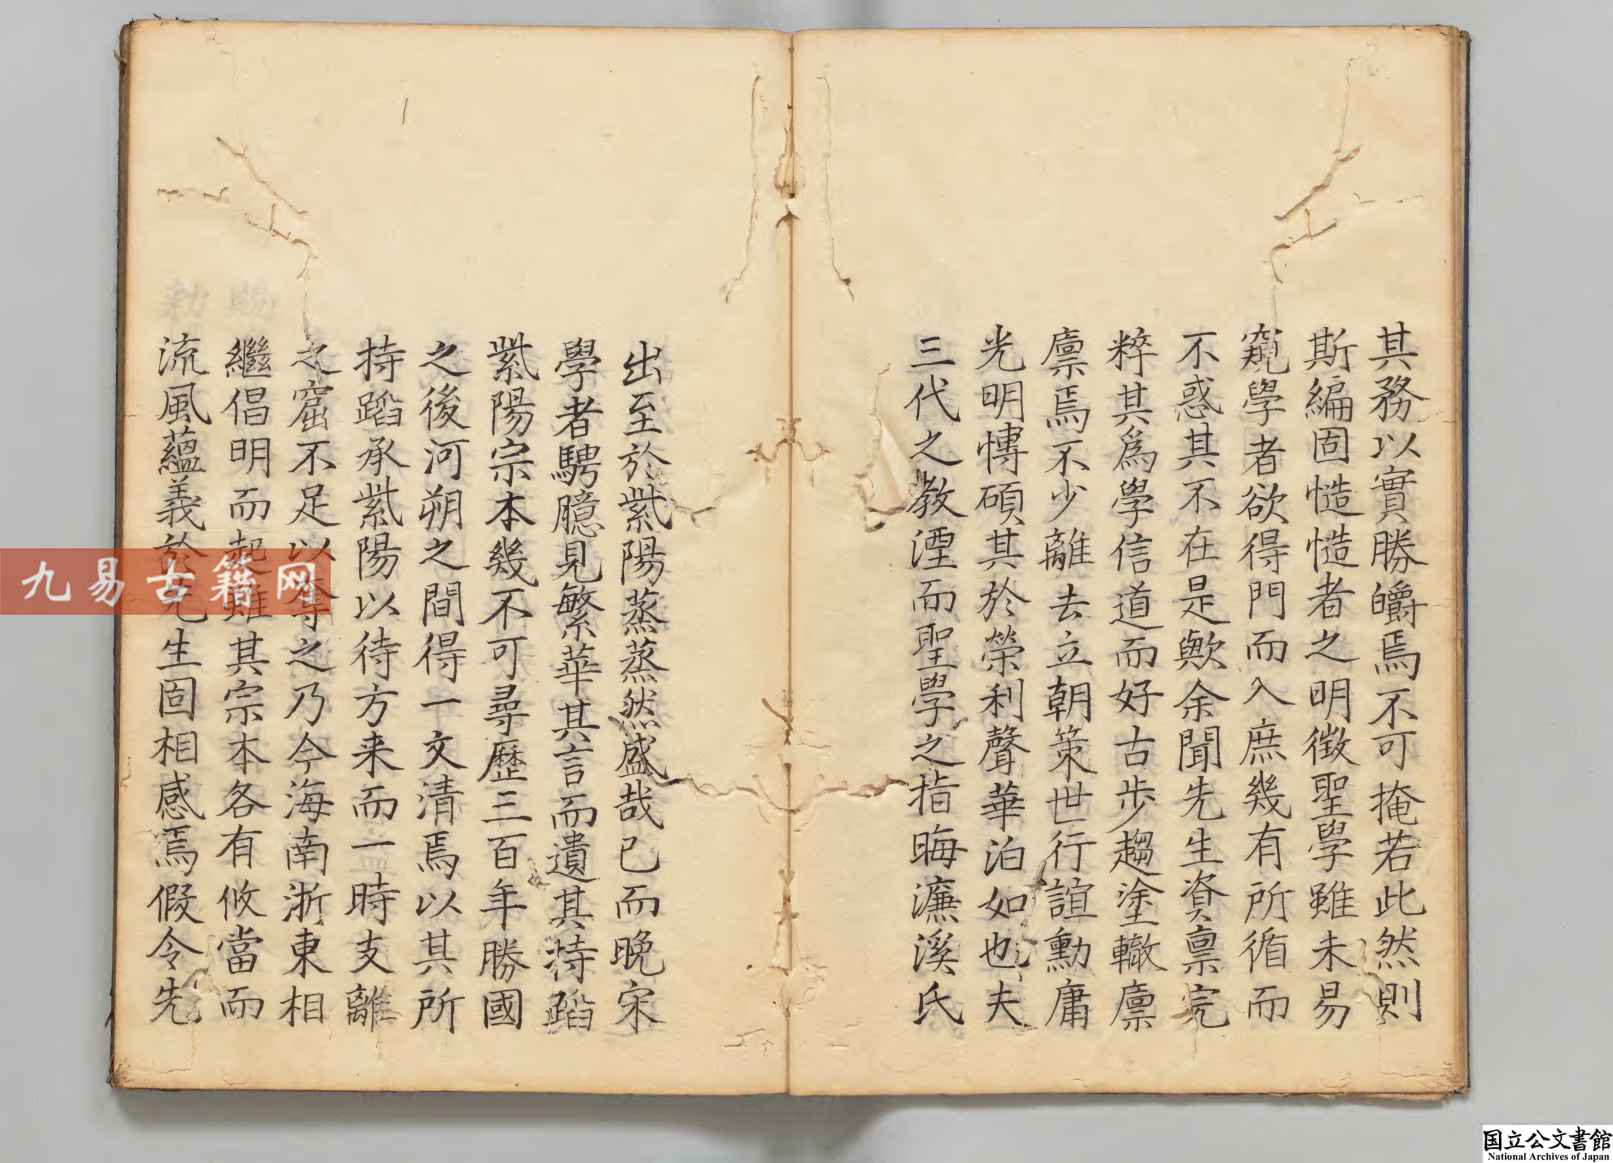 其務以實勝皭焉不可掩若此然則
斯編固慥慥者之明徴聖學雖未易
窺學者欲得門而入庶幾有所循而
不惑其不在是歟余聞先生資禀完
粹其爲學信道而好古步趨塗轍廪
廪焉不少離去立朝策世行誼勳庸
光明慱碩其於榮利聲華泊如也夫
三代之教湮而聖學之指晦濂溪氏
出至於紫陽蒸蒸然盛哉已而晚宋
學者騁臆見繁華其言而遺其持蹈
紫陽宗本幾不可尋歷三百年勝國
之後河朔之間得一文清焉以其所
持蹈承紫陽以待方来而一時支離
之窟不足以奪之乃今海南浙東相
繼倡明而起雖其宗本各有攸當而
流風蘊義於先生固相感焉假令先
九易古籍网
国立公文書館
National Archives of Japan